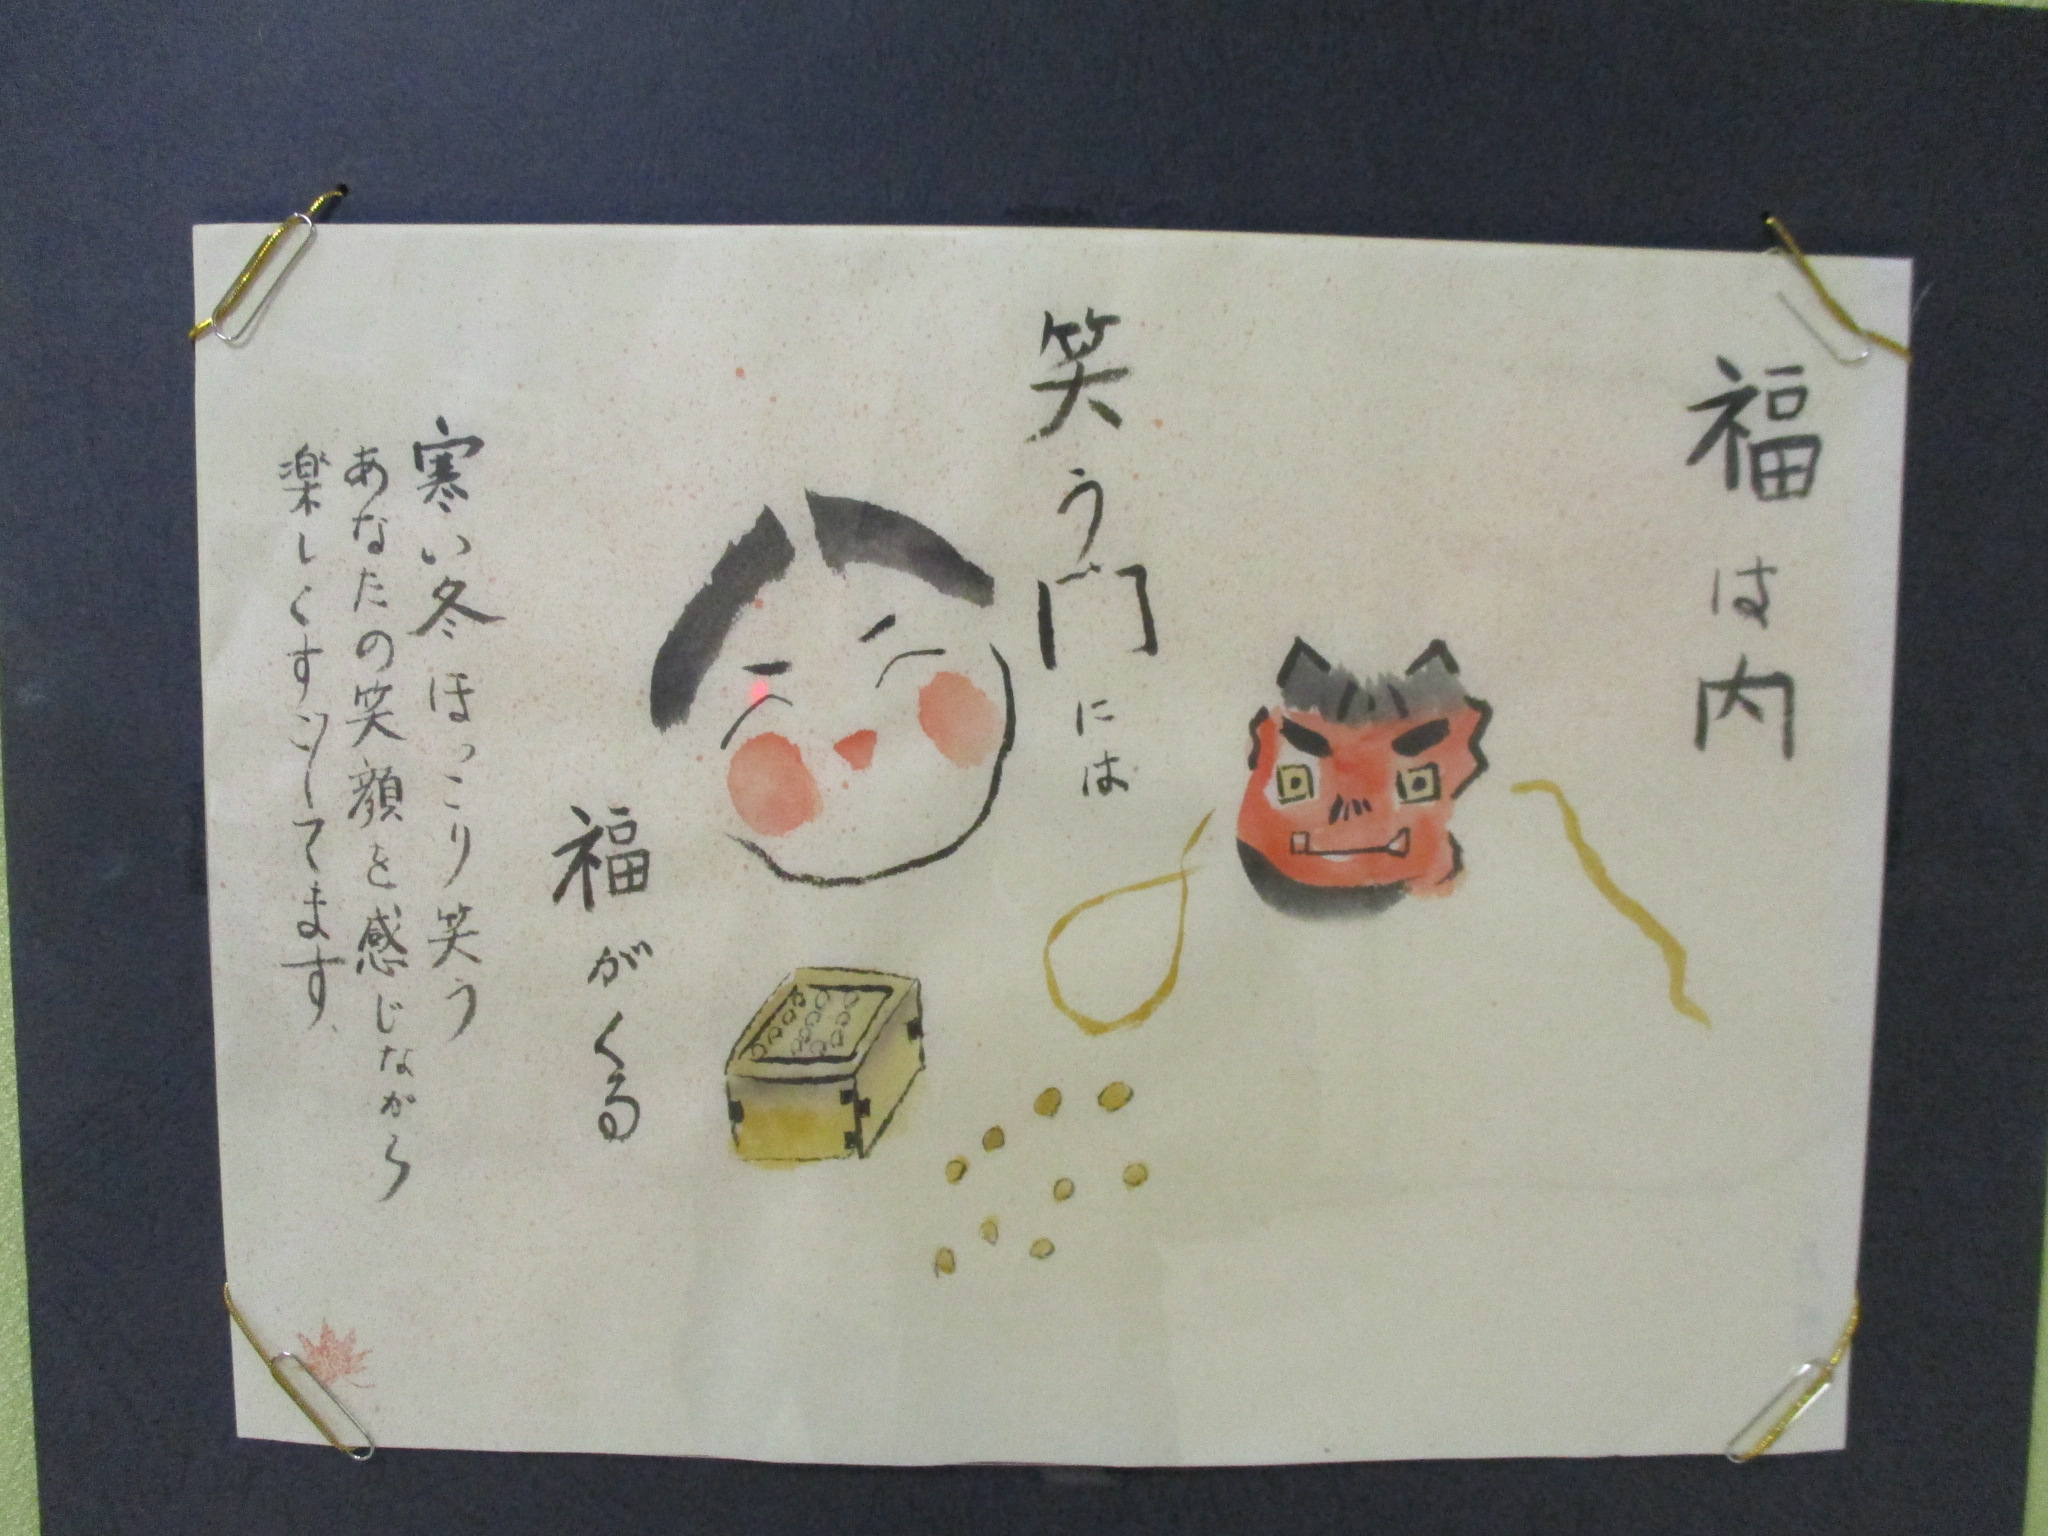 福は内
笑う門には
福がくる
寒い冬ほっこり笑う
あなたの笑顔を感じながら
楽しくすごしてます